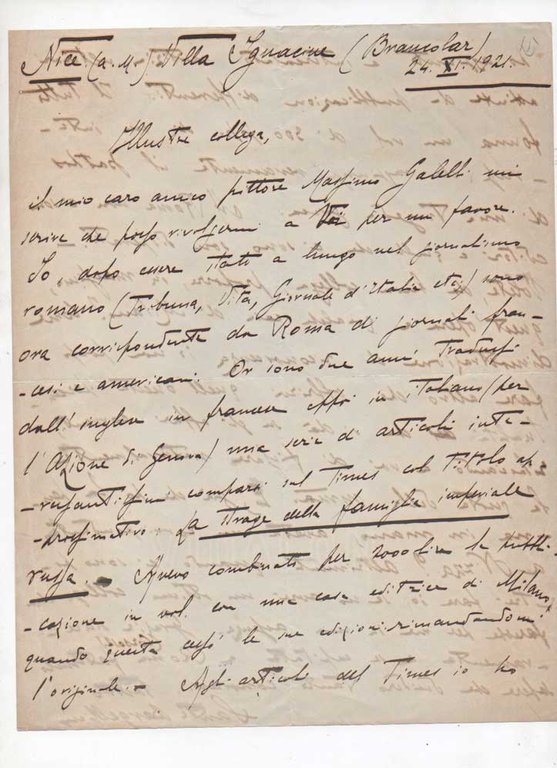 Nice (a. M.) Villa Ignacine (Brancolar)
24. XI. 1921.
Illustre collega,
il mio caro amico pittore Massimo Galelli mi
scrive che posso rivolgermi a Voi per un favore.
Io, dopo essere stato a lungo nel giornalismo
romano (Tribuna, Vita, Giornale d'Italia etc.) sono
ora corrispondente da Roma di giornali fran-
-cesi e americani. Or sono due anni tradussi
dall'inglese in francese in italiano (per
l'Azione di Genova) una serie di articoli inte-
-ressantissimi comparsi sul Times col titolo ap-
-prossimativo: La strage della famiglia imperiale
russa. - Avevo combinato per 2000 lire la pubbli-
-cazione in vol. con una casa editrice di Milano,
quando questa cessò le sue edizioni rimandandomi
l'originale. - Agli articoli del Times io ho